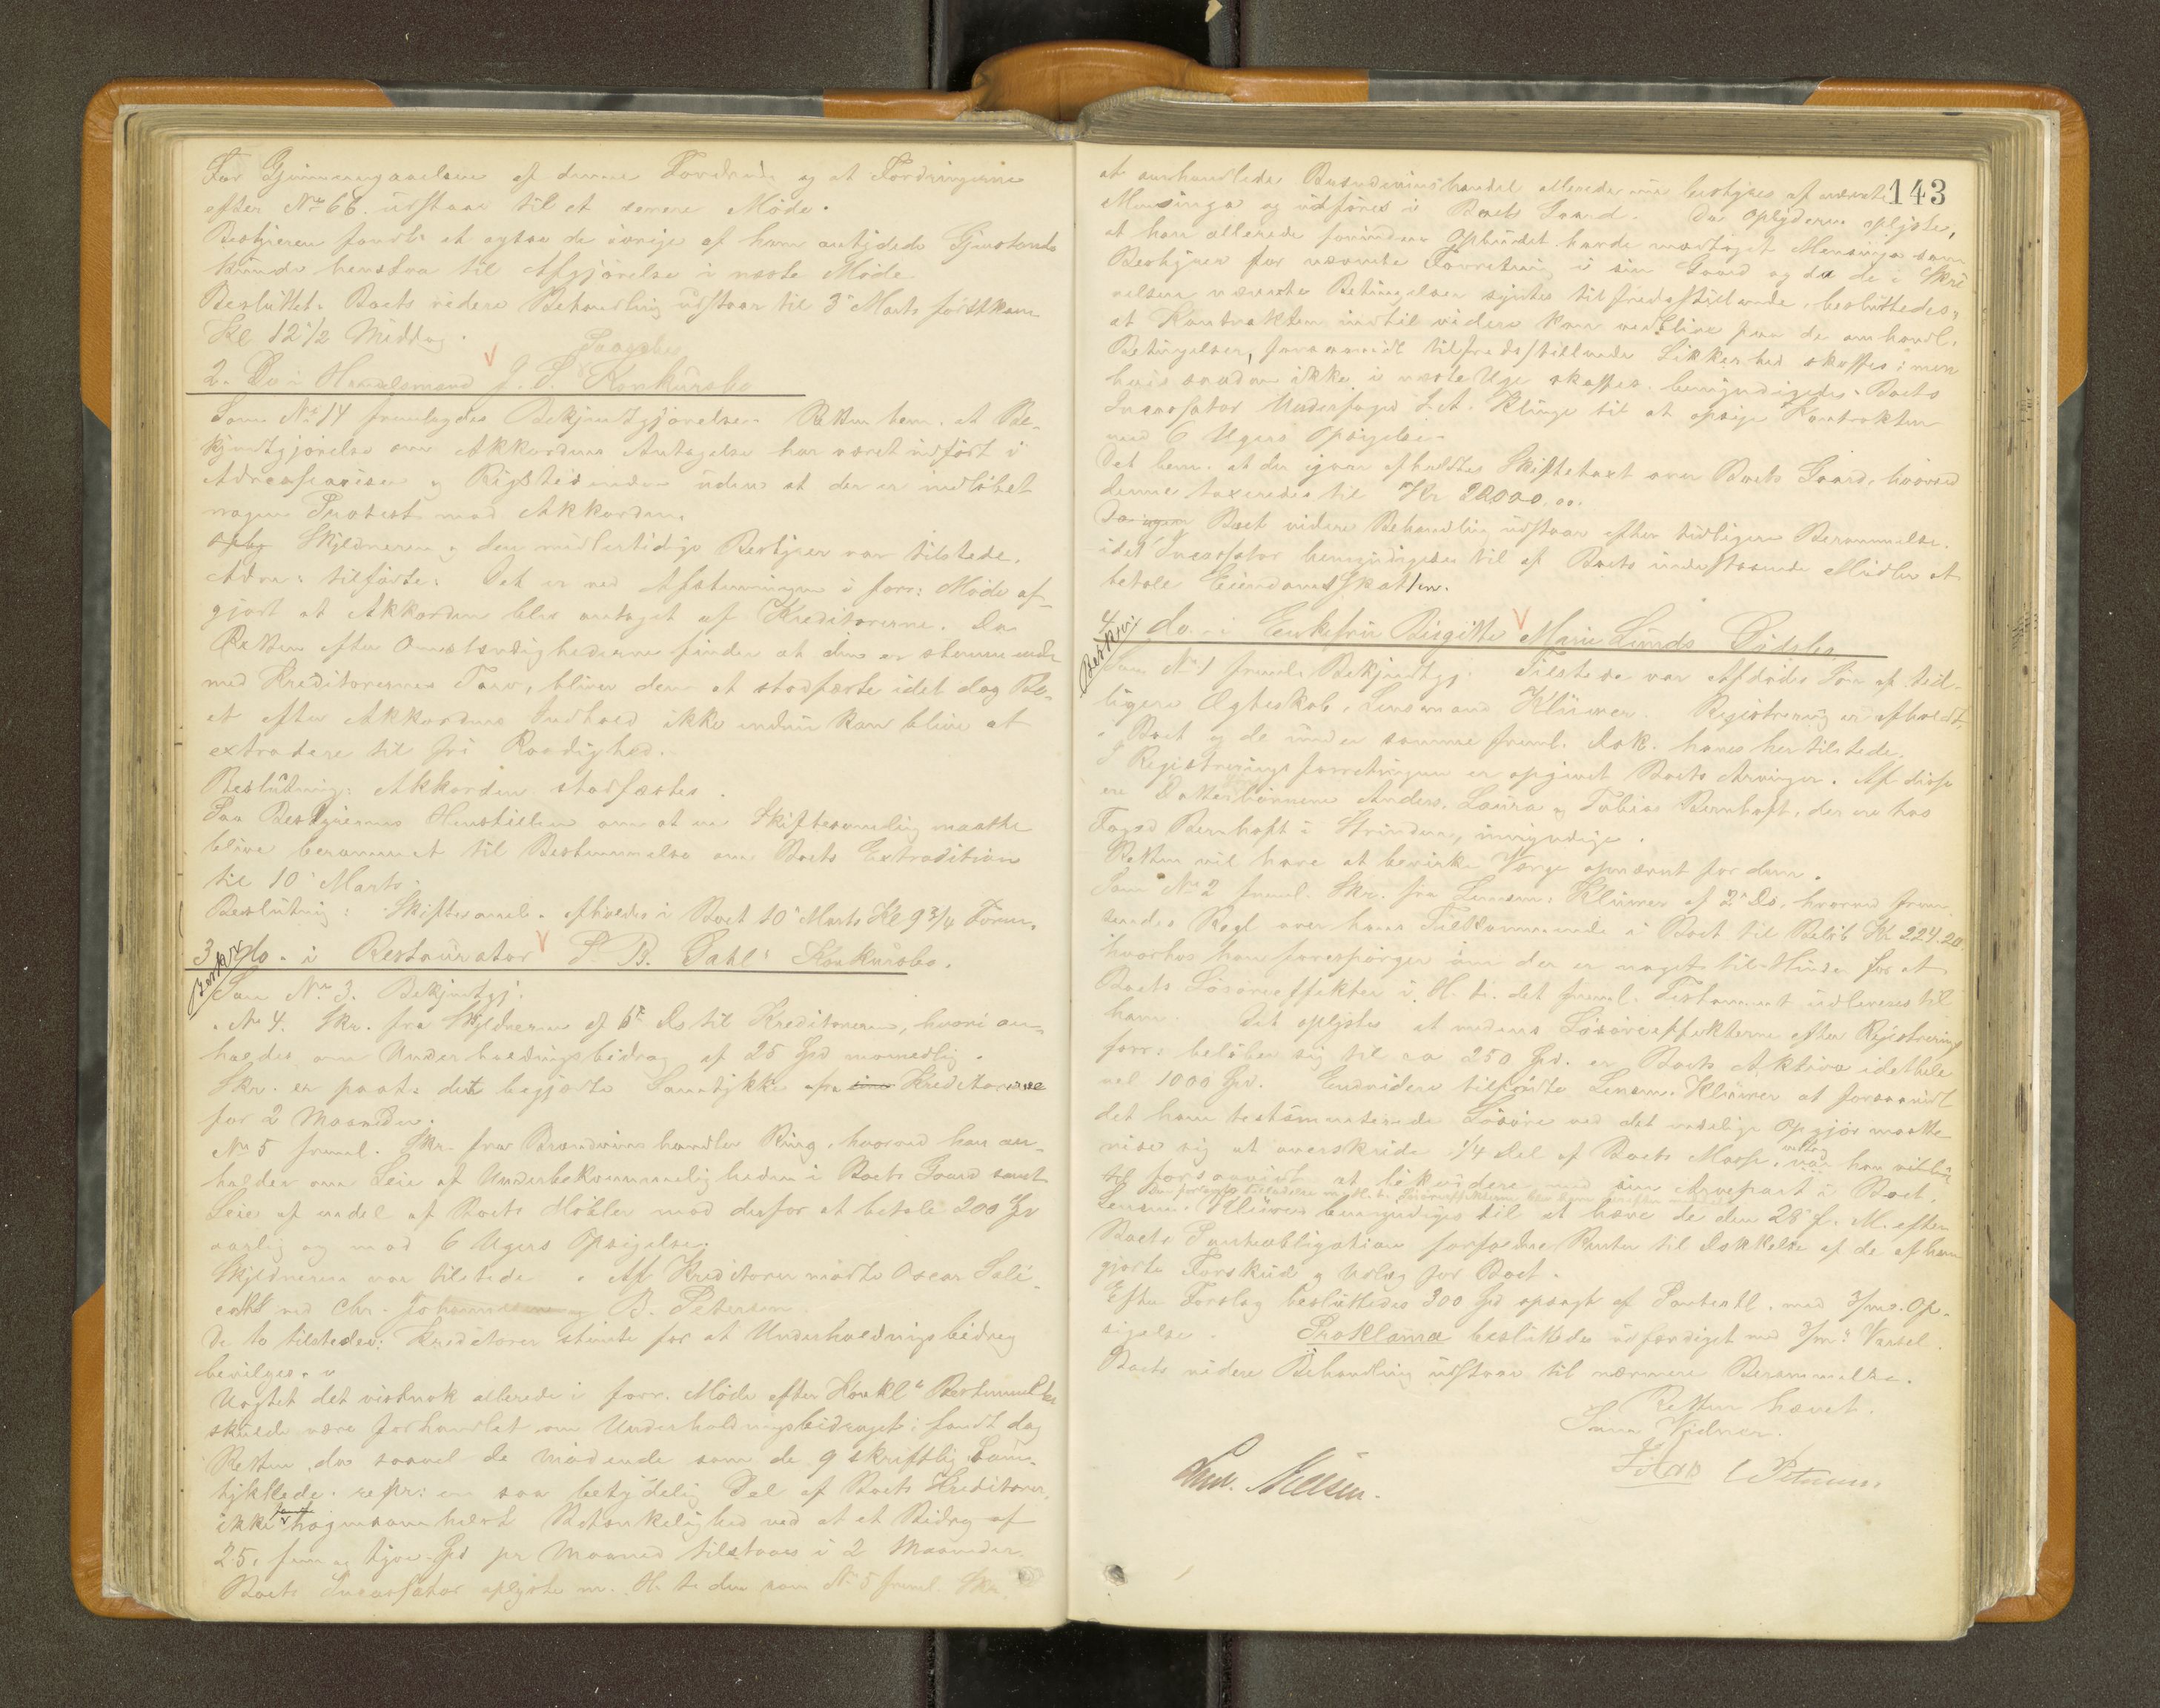 For Gjennemgaaelsen af denne og at Fordringerne
efter No 66. udstaar til et senere Möde.
Bestyreren fandt at ogsaa de övrige af ham antydede Gjenstande
kunde henstaa til Afgjörelse i næste Möde.
Besluttet. Boets videre Behandling udstaar til 3 Marts förstkom.
Kl 12 1/2 Middag.
2. Do i Handelsmand J. S. Konkursbo
Som No 14 fremlagdes Bekjendtgjörelse. Retten bem. at Be-
kjendtgjörelse om Akkordens Antagelse har været indfört i
Adresseavisen og Rigstidenden uden at der er indlöbet
nogen Protest mod Akkorden.
Skyldneren og den midlertidige Bestyrer var tilstede.
tilförte: Det er ved Afstemningen i forr: Möde af-
gjort at Akkorden blev antaget af Kreditorerne. Da
Retten efter Omstændighederne finder at den er stemmende
med Kreditorernes Tarv, bliver den at stadfæste idet dog Bo-
et efter Akkordens Indhold ikke endnu kan blive at
extradere til fri Raadighed.
Beslutning: Akkorden stadfæstes.
Paa Bestyrerens Henstillen om at en Skiftesamling maatte
blive berammet til Bestemmelse om Boets Extradition
til 10 Marts.
Beslutning: Skiftesaml. afholdes i Boet 10 Marts Kl 9 3/4 Form.
3 do. i Restauratör P. B. Dahls Konkursbo.
Som No. 3. Bekjendtgj.
" No 4. Skr. fra Skyldneren af 6 Ds til Kreditorerne, hvori an-
holdes om Underholdningsbidrag af 25 Kr maanedlig.
Skr. er paat. det begjærte Samtykke fra Kreditorerne
for 2 Maaneder.
No 5 freml. Skr. fra Brændevinshandler Ring, hvorved han an-
holder om Leie af Underbekvemmeligheden i Boets Gaard samt
Leie af endel af Boets Möbler mod derfor at betale 200 Kr
aarlig og mod 6 Ugers Opsigelse.
Skyldneren var tilstede. Af Kreditorer mödte Oscar
ved Chr. Johannesen og B. Petersen.
De to tilstedev: Kreditorer stemte for at Underholdningsbidrag
bevilges.
Uagtet det vistnok allerede i forr. Möde efter Konkl Bestemmelse
skulde være forhandlet om Underholdningsbidraget: fandt dog
Retten, da saavel de mödende som de 9 skriftlig Sam-
tykkede. repr: en saa betydelig Del af Boets Kreditorer,
ikke nogensomhelst Betænkelighed ved at et Bidrag af
25. fem og tyve Kr pr Maaned tilstaaes i 2 Maaneder.
Boets Incassator oplyste m. H. t. den som No 5 freml. Skr.
143
at omhandlede Brændevinshandel allerede bestyres af nævnte
Mensinga og udföres i Boets Gaard. Da oplyste,
at han allerede forinden Opbudet havde modtaget Mensinga som
Bestyrer for nævnte Forretning i sin Gaard og da de i Skri
velsen nævnte Betingelser syntes tilfredsstillende, besluttedes,
at Kontrakten indtil videre kan vedblive paa de omhandl.
Betingelser, forsaavidt tilfredsstillende Sikkerhed skaffes; men
hvis saadan ikke i næste Uge skaffes bemyndigedes Boets
Incassator Underfoged J. A. Klinge til at opsige Kontrakten
med 6 Ugers Opsigelse.
Det bem. at der igaar afholdtes Skiftetaxt over Boets Gaard, hvorved
denne taxeredes til Kr 22000.00.
Boet videre Behandling udstaar efter tidligere Berammelse.
idet Incassator bemyndigedes til af Boets indestaaende Midler at
betale Eiendomsskatten.
4 do. i Enkefru Birgitte Marie Lunds Dödsbo
Som No 1 freml. Bekjendtgj. Tilstede var Afdödes Sön af tid-
ligere Ægteskab, Lensmand Klüwer. Registrering er afholdt
i Boet og de under samme freml. Dok. haves her tilstede.
I Registreringsforretningen er opgivet Boets Arvinger. Af disse
ere Datterbörnene Anders, Laura og Tobias Bernhoft, der ere hos
Foged Bernhoft i Strinden, umyndige.
Retten vil have at bevirke Værge opnævnt for dem.
Som No 2 freml. Skr. fra Lensm. Klüwer af 2 Ds, hvorved frem-
sendes Regl over hans Tilkommende i Boet til Belöb Kr 224.20
hvorhos han forespörger om der er noget til Hinder for at
Boets Lösöreeffekter i H. t. det freml. Testament udleveres til
ham. Det oplystes at medens Lösöreeffekterne efter Registrerings
forr: belöber sig til ca 250 Kr. er Boets Aktiva idethele
vel 1000 Kr. Endvidere tilförte Lensm. Klüwer at forsaavidt
det ham testamenterede Lösöre ved det endelige Opgjör maatte
vise sig at overskride 1/4 Del af Boets Masse,
til forsaavidt at likvidere med sin Arvepart i Boet.
Lensm. Klüwer bemyndiges til at hæve de den 28 f. M. efter
Boets Panteobligation forfaldne Renter til Dækkelse af de af ham
gjorte Forskud og Udlæg for Boet.
Efter Forslag besluttedes 300 Kr opsagt af Panteobl. med 3/mrs. Op-
sigelse. Proklama besluttedes udfærdiget med 3/m's Varsel.
Boets videre Behandling udstaar til nærmere Berammelse.
Retten hævet.
Som Vidner.
Petersen
Nielsen.